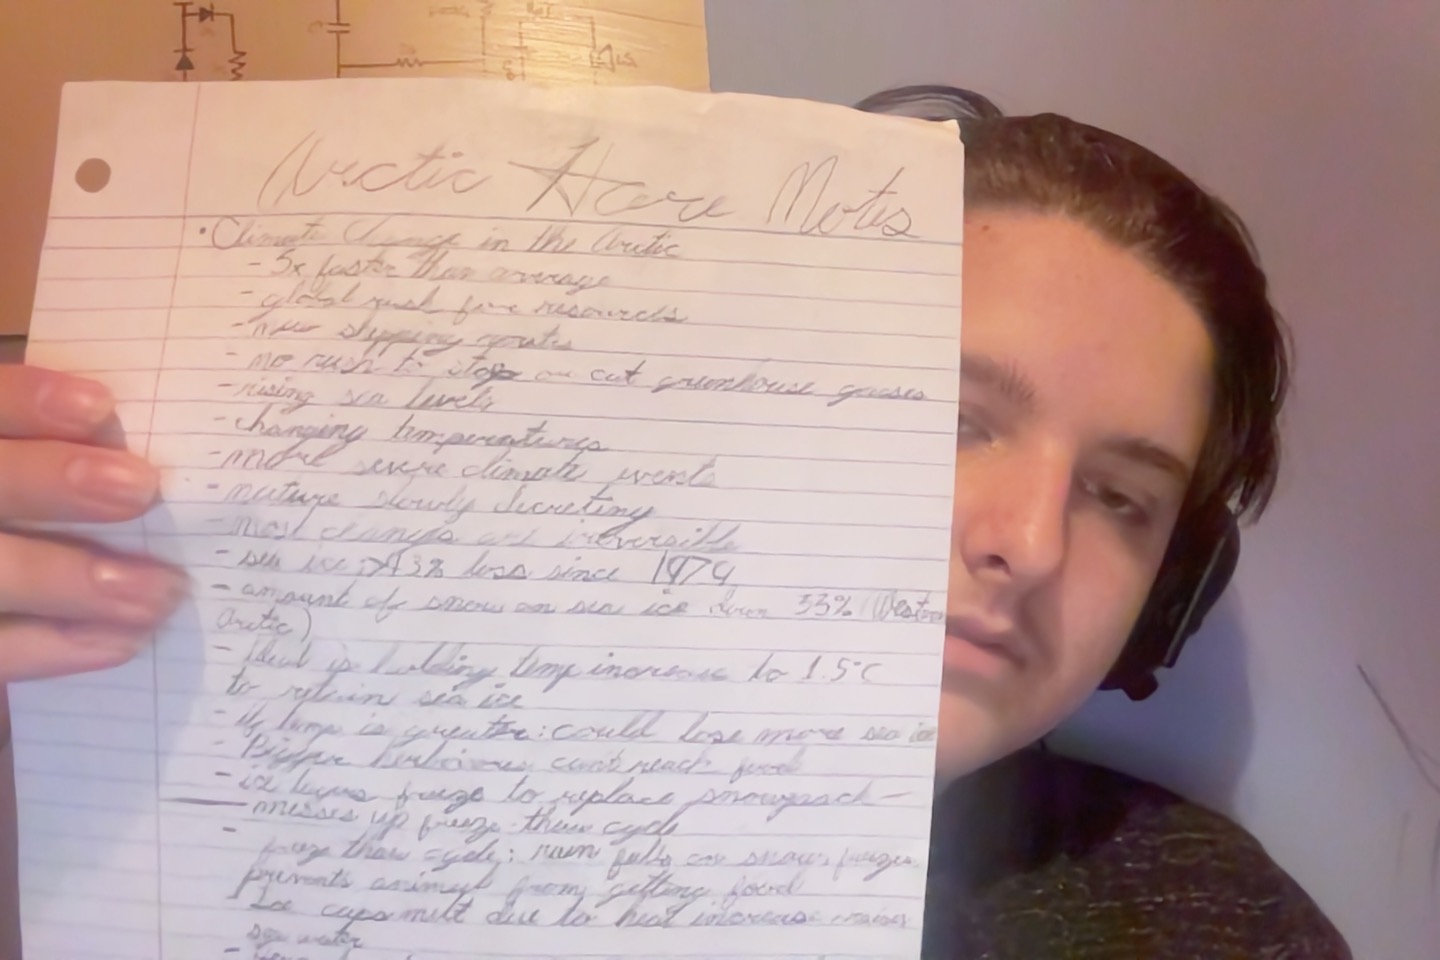 Arctic Hare Notes
• Climate Change in the Arctic
- 5x faster than average
- global rush for resources
- new shipping routes
- no rush to stop or cut greenhouse gasses
- rising sea levels
- changing temperatures
- more severe climate events
- nature slowly
- most changes are irreversible
- sea ice: loss since
- amount of snow on sea ice down 33% (Western
Arctic)
- Ideal is holding temp increase to 1.5°C
to retain sea ice
- If temp is greater: could lose more sea ice
- Bigger herbivores can't reach food
- ice layers freeze to replace snowpack -
messes up freeze-thaw cycle
- freeze thaw cycle: rain falls on snow, freezes
prevents animals from getting food
- Ice caps melt due to heat increase raises
sea water